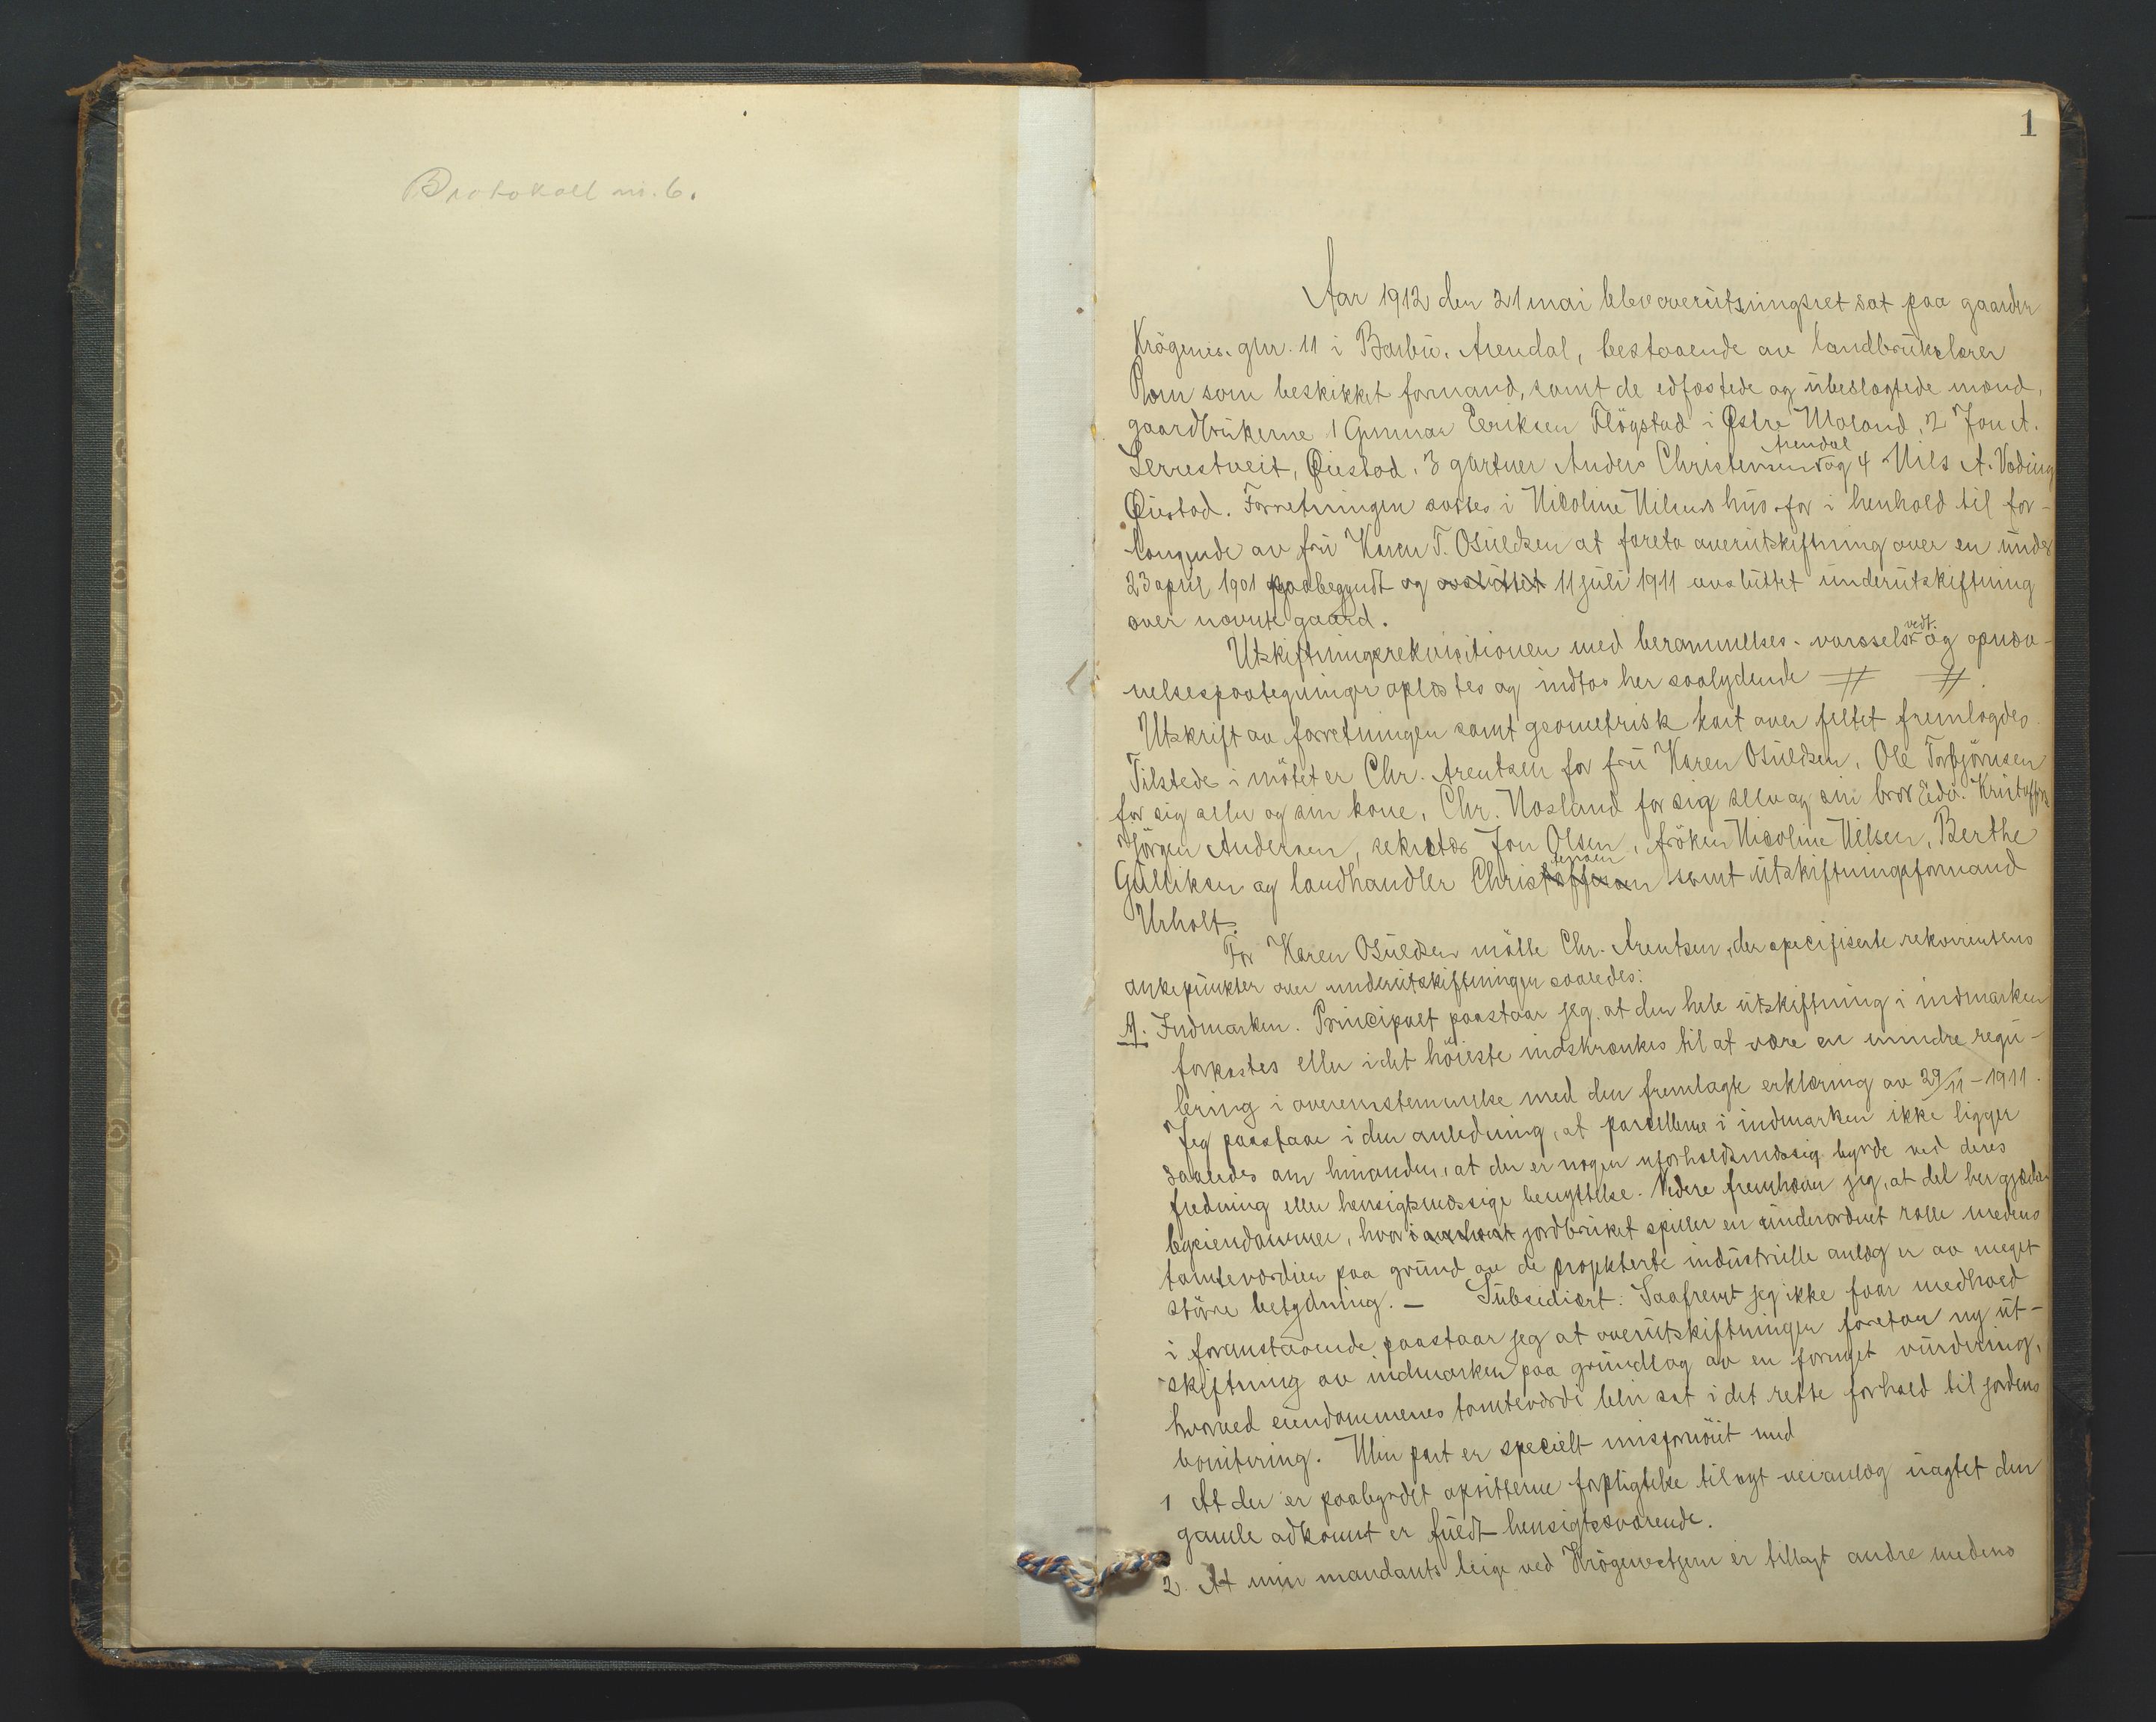 Protokoll nr. 6.
1
Aar 1912 den 21 mai blev overutsningsret sat paa gaarden
Krögenes gnr. 11 i Barbu, Arendal, bestaaende av landbrukslærer
som beskikket formand, samt de edfæstede og ubeslægtede mænd,
gaardbrukerne 1 Gunnar Eeriksen Flögstad i Østre Moland, 2 Jon A.
Lerrestveit, Øiestad, 3 gartner Anders Christensen Arendal og 4 Nils A. Vöding
Øiestad. Forretningen sattes i Nicoline Nilsens hus for i henhold til for-
langende av fru Karen T. Osuldsen at foreta overutskiftning over en under
23 april 1901 paabegyndt og avsluttet 11 juli 1911 avsluttet underutskiftning
over nævnte gaard.
Utskiftningsrekvisitionen med berammelses- varsels- vedt. og opnæv-
nelsespaategninger oplæstes og indtas her saalydende # #
Utskrift av forretningen samt geometrisk kart over feltet fremlagdes.
Tilstede i mötet er Chr. Arentsen for fru Karen Osuldsen, Ole Torbjörnsen
for sig selv og sin kone, Chr. Nosland for sig selv og sin bror Edv. Kristoffersen
Jörgen Andersen, sekretær Jon Olsen, fröken Nicoline Nilsen, Berthe
Gulliksen og landhandler Christoffersen tensen samt utskiftningsformand
Urholt.
For Karen Osuldsen mötte Chr. Arentsen, der specifiserte rekvirentens
ankepunkter over underutskiftningen saaledes:
A. Indmarken. Principalt paastaar jeg, at den hele utskiftning i indmarken
forkastes eller i det höieste indskrænkes til at være en mindre regu-
lering i overensstemmelse med den fremlagte erklæring av 29/11 - 1911.
Jeg paastaar i den anledning, at parcellerne i indmarken ikke ligger
saaledes om hinanden, at der er nogen uforholdsmæssig byrde ved deres
fredning eller hensigtsmæssige benyttelse. Videre fremhæver jeg, at det her gjælder
byeiendommer, hvor jordbruket spiller en underordnet rolle medens
tomteværdien paa grund av de projekterte industrielle anlæg er av meget
större betydning. - Subsediært: Saafremt jeg ikke faar medhold
i foranstaaende paastaar jeg at overutskiftningen foretar ny ut-
skiftning av indmarken paa grundlag av en fornyet vurdering,
hvorved eiendommenes tomteværdi blir sat i det rette forhold til jordens
bonitering. Min part er specielt misfornöiet med
1 At der er paabyrdet opsitterne forpligtelse til nyt veianlæg uagtet den
gamle adkomst er fuldt hensigtssvarende.
2. At min mandants leige ved Krögenestjern er tillagt andre medens